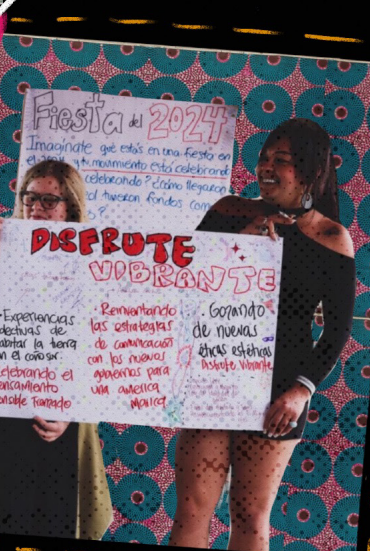 Fiesta del 2024
Imagínate que estás en una fiesta en
el y tu movimiento está celebrando
celebrando? ¿cómo llegaron
tuvieron fondos como
s?
DISFRUTE
VIBRANTE
Experiencias
lectivas de
abitar la tierra
n el cono sur.
elebrando el
ensamiento
onsible Tramado
Reinventando
las estrategias
de comunicación
con los nuevos
para
una america
marica
. Gozando
de nuevas
éticas estéticas
Disfrute Vibrante